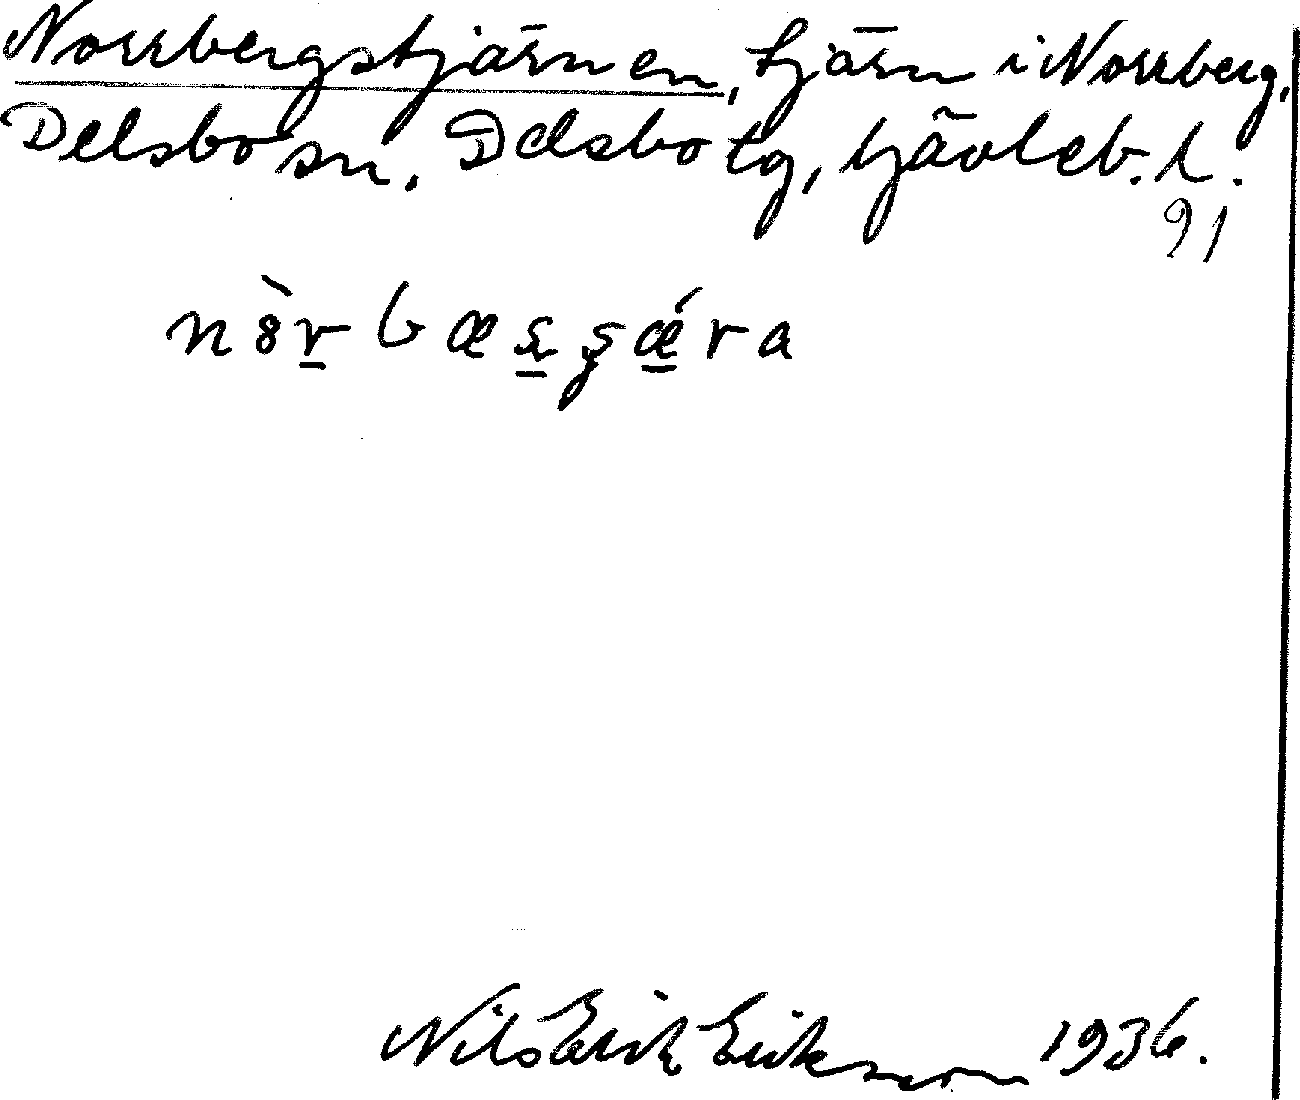 Norrbergstjärnen, tjärn i Norrberg,
Delsbo sn. Delsbo tg, Gävleb. l.
91
Nils Erik Eriksson 1936.